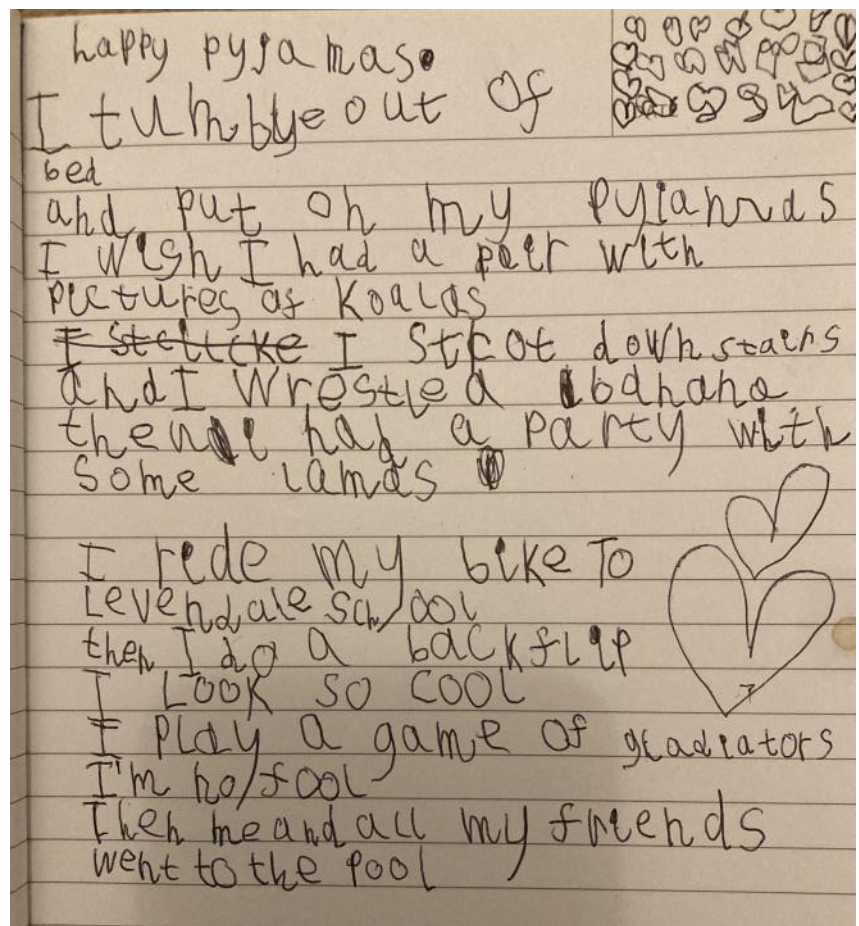 happy pyjamas.
I tumblye out of
bed
and put on my pyjamas
I wish I had a pair with
pictures of Koalas
I I strot down stairs
and I wrestle a banana
then I had a party with
some lamas
I ride my bike To
Levendale school
then I do a backflip
I LOOK so cool
I play a game of gladiators
I'm no fool
Then me and all my friends
went to the pool